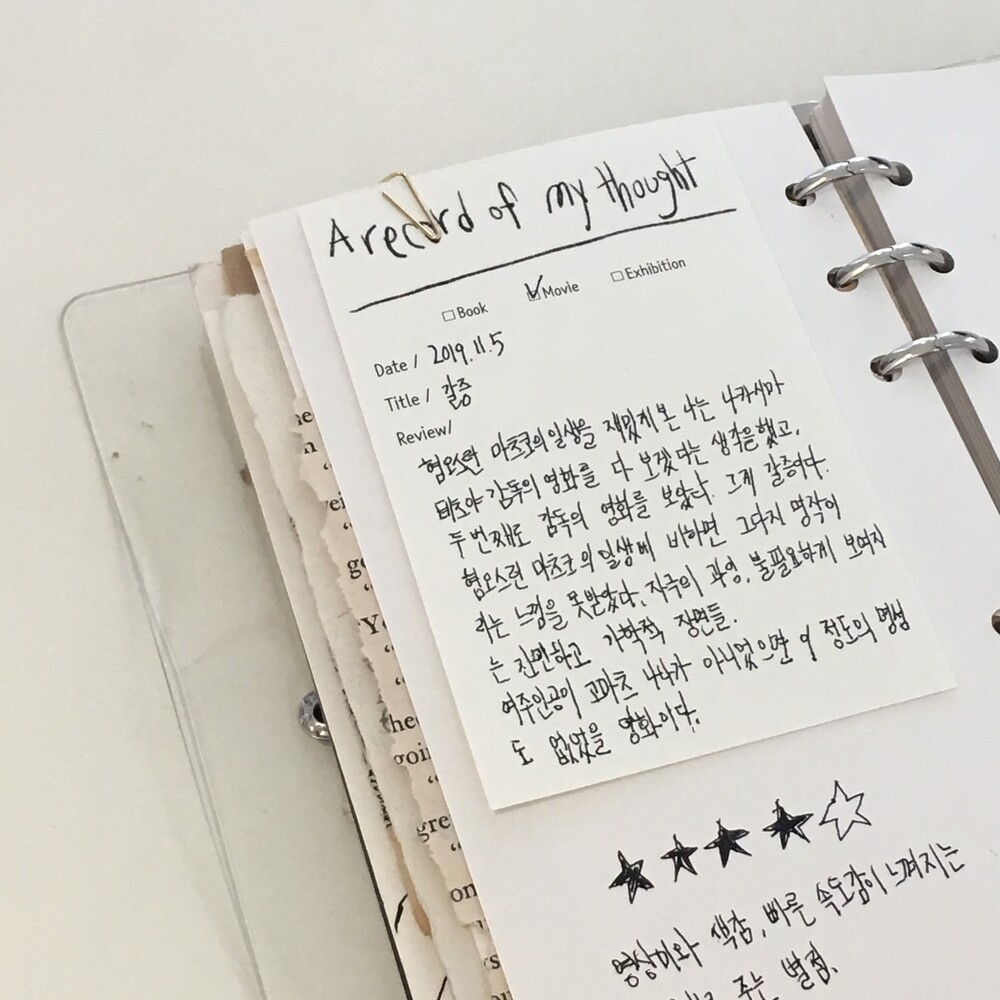 A record of my thought
□Book ☑Movie □Exhibition
Date / 2019.11.5
Title / 갈증
Review/
혐오스런 마츠코의 일생을 재밌게 본 나는 나카시마
테츠야 감독의 영화를 다 보겠다는 생각을 했고,
두번째로 감독의 영화를 보았다. 그게 갈증이다.
혐오스런 마츠코의 일생에 비하면 그다지 명작이
라는 느낌을 못받았다. 자극의 과잉, 불필요하게 보여지
는 잔인하고 가학적 장면들.
여주인공이 고마츠 나나가 아니었으면 이 정도의 명성
도 없었을 영화이다.
★★★★☆
영상미와 색감, 빠른 속도감이 느껴지는
주는 별점.
he
n
"
vei
"
ge
"
"Y
"
hec
goi
"
gre
"
on